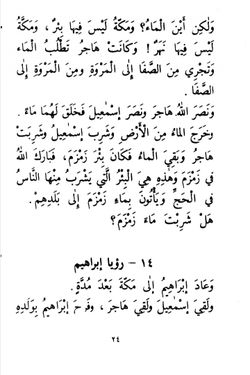 وَلَكِن أَيْنَ الْمَاءُ؟ وَمَكَّةُ لَيْسَ فِيهَا بِئْرٌ ، وَمَكَّةُ
لَيْسَ فِيهَا نَهْرٌ ! وَكَانَتْ هَاجَرُ تَطْلُبُ الْمَاءَ
وَتَجْرِي مِنَ الصَّفَا إِلَى الْمَرْوَةِ وَمِنَ الْمَرْوَةِ إِلَى
الصَّفَا .
وَنَصَرَ اللهُ هَاجَرَ وَنَصَرَ إِسْمَعِيلَ فَخَلَقَ لَهُمَا مَاءً .
وَخَرَجَ الْمَاءُ مِنَ الْأَرْضِ وَشَرِبَ إِسْمَعِيلُ وَشَرِبَتْ
هَاجَرُ وَبَقِيَ الْمَاءُ فَكَانَ بِئْرَ زَمْزَمَ ، فَبَارَكَ اللهُ
فِي زَمْزَمَ وَهَذِهِ هِيَ الْبِئْرُ الَّتِي يَشْرَبُ مِنْهَا النَّاسُ
فِي الْحَجِّ وَيَأْتُونَ بِمَاءِ زَمْزَمَ إِلَى بَلَدِهِمْ .
هَلْ شَرِبْتَ مَاءَ زَمْزَمَ؟
١٤ - رؤيا إبراهيم
وَعَادَ إِبْرَاهِيمُ إِلَى مَكَّةَ بَعْدَ مُدَّةٍ .
وَلَقِيَ إِسْمَعِيلَ وَلَقِيَ هَاجَرَ ، وَفَرِحَ إِبْرَاهِيمُ بِوَلَدِهِ
٢٤